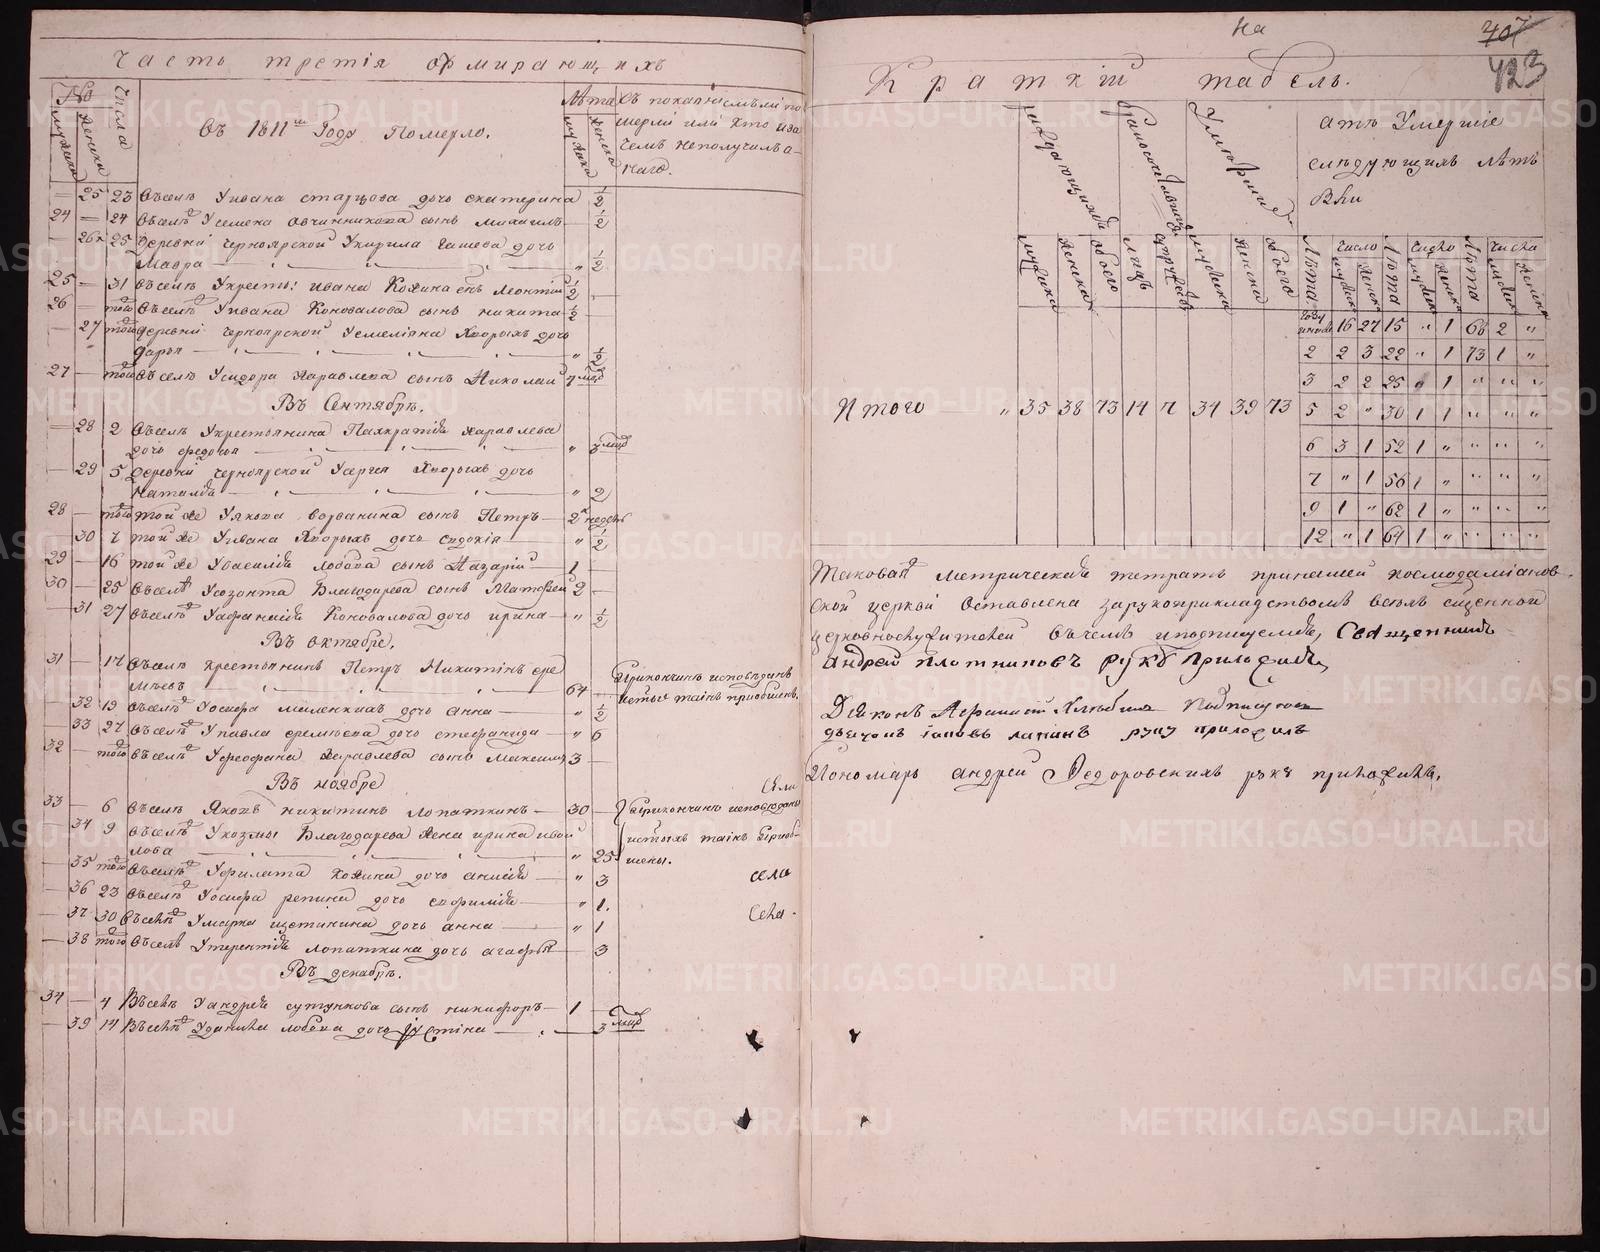 часть третія о умирающихъ
№
мужска
женска
числа
Въ 1811мъ Году Померло.
Лѣта
мужска
женска
съ покаяніемъ ли по
мерли или кто и за
чемъ неполучилъ о
наго.
— 25 23 Въселѣ У ивана старцова дочь екатерина ½
24 — 24 Въселѣ У семена овчинникова сынъ михаилъ ½
— 26 25 деревни черноярской У кирила дочь
Мавра — " ½
25 — 31 Въселѣ У крестья: ивана Кожина сынъ леонтій ½ —
26 — того Въселѣ У ивана Коновалова сынъ никита ½ —
— 27 того деревни черноярской У емеліяна Хворыхъ дочь
дарья — " ½
27 — того Въселѣ У сидора Журавлева сынъ Николай 4 мѣс
Въ Сентябрѣ.
— 28 2 Въселѣ У крестьянина Панкратія журавлева
дочь федосья — " 3 мѣс
— 29 5 деревни черноярской У сергея Хворыхъ дочь
Наталья — " 2
28 — того той же У якова сынъ Петръ — 2 недель
— 30 7 той же У ивана Хворыхъ дочь евдокія — " ½
29 — 16 той же У василія лобова сынъ Назарій 1 —
30 — 25 Въселѣ У созонта Благодарева сынъ Матвей 2 —
— 31 27 Въселѣ У афанасія Коновалова дочь ирина — " ½
Въ октябре.
31 — 17 Въселѣ крестьянинъ Петръ Никитинъ ере
мѣевъ — 64 —
Прикончинѣ исповѣданъ
исвятыхъ таинъ приобщенъ.
— 32 19 Въселѣ У осифа дочь анна — " ½
— 33 27 Въселѣ У павла еремѣева дочь стефанида — " 6
32 — того Въселѣ У феофана журавлева сынъ Максимъ 3 —
Въ ноябре
33 — 6 Въселѣ Яковъ никитинъ лопаткинъ — 30 —
Прикончинѣ исповѣданы
исвятыхъ таинъ приоб-
щены.
— 34 9 Въселѣ У козмы Благодарева жена ирина
лова — " 25
— 35 того Въселѣ У филата Кожина дочь анисія — " 3
села
— 36 23 Въселѣ У осифа репина дочь евфимія — " 1.
— 37 30 Въселѣ У марка щетинина дочь анна — " 1
села
— 38 того Въселѣ У терентія лопаткина дочь агафья 3
Въ декабрѣ.
34 — 4 Въселѣ У андрея сутункова сынъ никифоръ — 1
— 39 14 Въселѣ У данила лобова дочь устина — 3 мѣс
на
407
423
Краткій табель.
раждающихся
бракосочетавшихся
Умершихъ
атъ Умершіе
следующихъ лѣтъ
были
мужска
женска
обоего
лицъ
супружевъ
мужска
женска
обоего
Лѣта
число
мужска
женска
Лѣта
число
мужска
женска
Лѣта
числа
мужска
женска
Году 16 27 15 " 1 66 2 "
2 2 3 22 " 1 73 1 "
3 2 2 25 " 1 " " "
Итого " 35 38 73 14 7 34 39 73 5 2 " 30 1 1 " " "
6 3 1 52 1 " " " "
7 " 1 56 1 " " " "
9 1 " 62 1 " " " "
12 " 1 64 1 " " " "
Таковая метрическая тетрать принашей космодаміанов-
ской церкви Оставлена зарукоприкладствомъ всемъ сщенной
церковнослужителей Въчемъ иподписуемся, Священникъ
Андрей Плотниковъ руку приложилъ
Діяконъ Афанасий Хлыбинъ Подписуюсь
дьячокъ іаковъ лапинъ руку приложилъ
Пономарь андрей Федоровскихъ руку приложилъ,